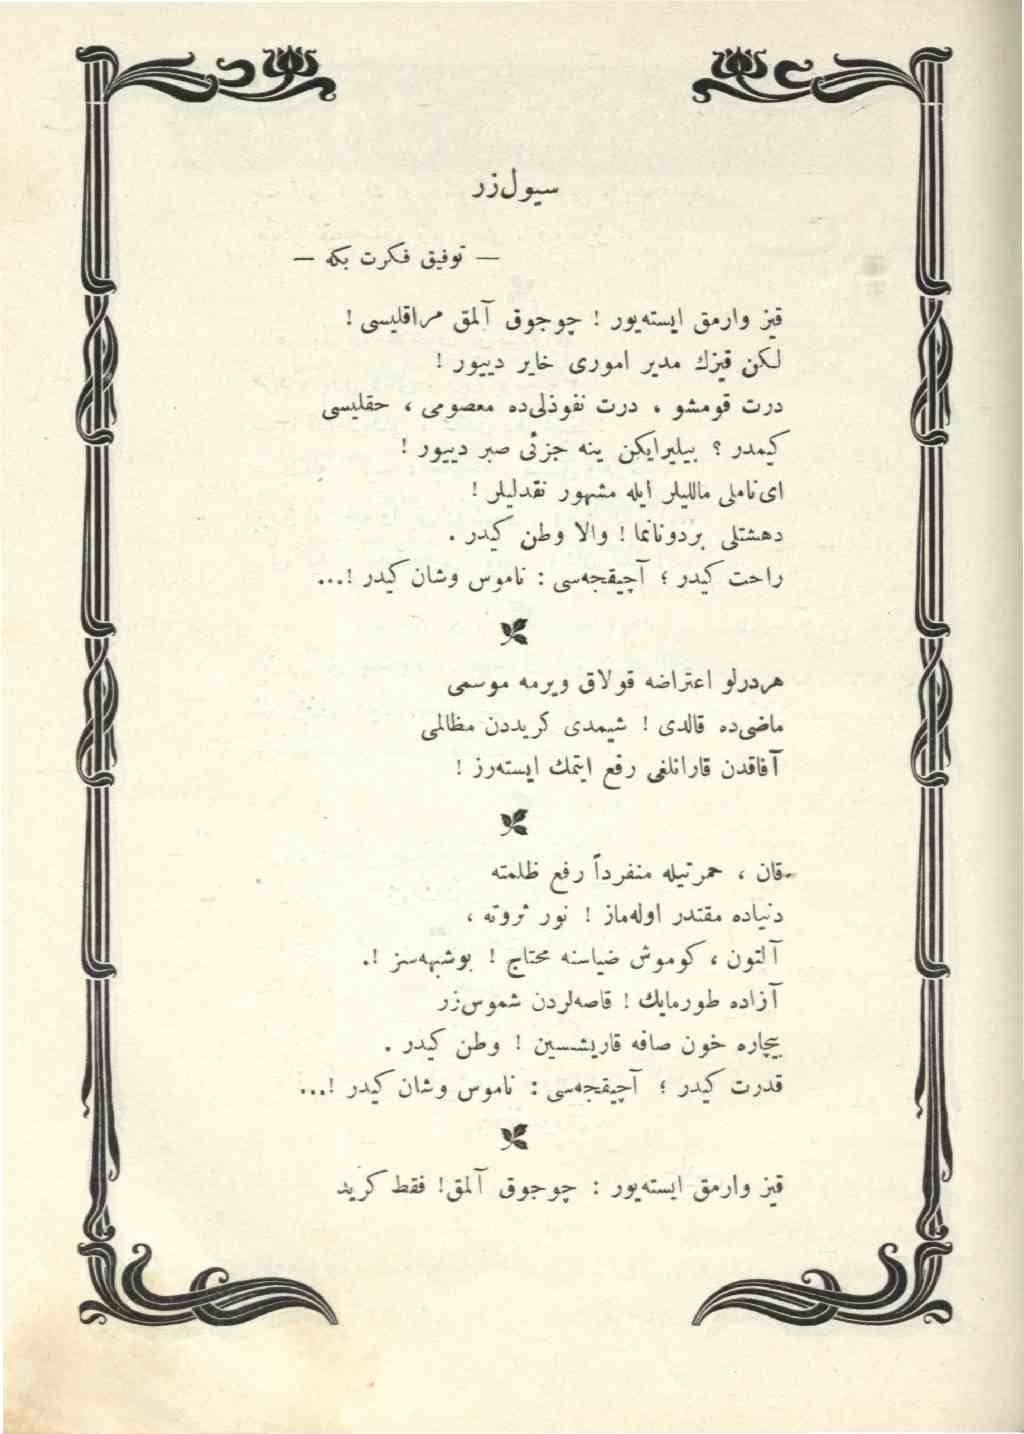 سيول‌زر
— توفيق فكرت بكه —
قيز وارمق ايسته‌يور ! چوجوق آلمق مراقليسى !
لكن قيزك مدير امورى خاير دييور !
درت قومشو ، درت نفوذلى‌ده معصومى ، حقليسى
كيمدر ؟ بيليرايكن ينه جزئى صبر دييور !
اى‌ناملى ماللیلر ايله مشهور نقدليلر !
دهشتلى بردونانما ! والا وطن كيدر .
راحت كيدر ؛ آچيقجه‌سى : ناموس وشان كيدر !...
هردرلو اعتراضه قولاق ويرمه موسمى
ماضى‌ده قالدى ! شيمدى كريددن مظالمى
آفاقدن قارانلغى رفع ايتمك ايسته‌رز !
قان ، حمرتيله منفرداً رفع ظلمته
دنياده مقتدر اوله‌ماز ! نور ثروته ،
آلتون ، كوموش ضياسنه محتاج ! بوشبهه‌سز !.
آزاده طورمايك ! قاصه‌لردن شموس‌زر
بيچاره خون صافه قاريشسين ! وطن كيدر .
قدرت كيدر ؛ آچيقجه‌سى : ناموس وشان كيدر !...
قيز وارمق ايسته‌يور : چوجوق آلمق! فقط كريد